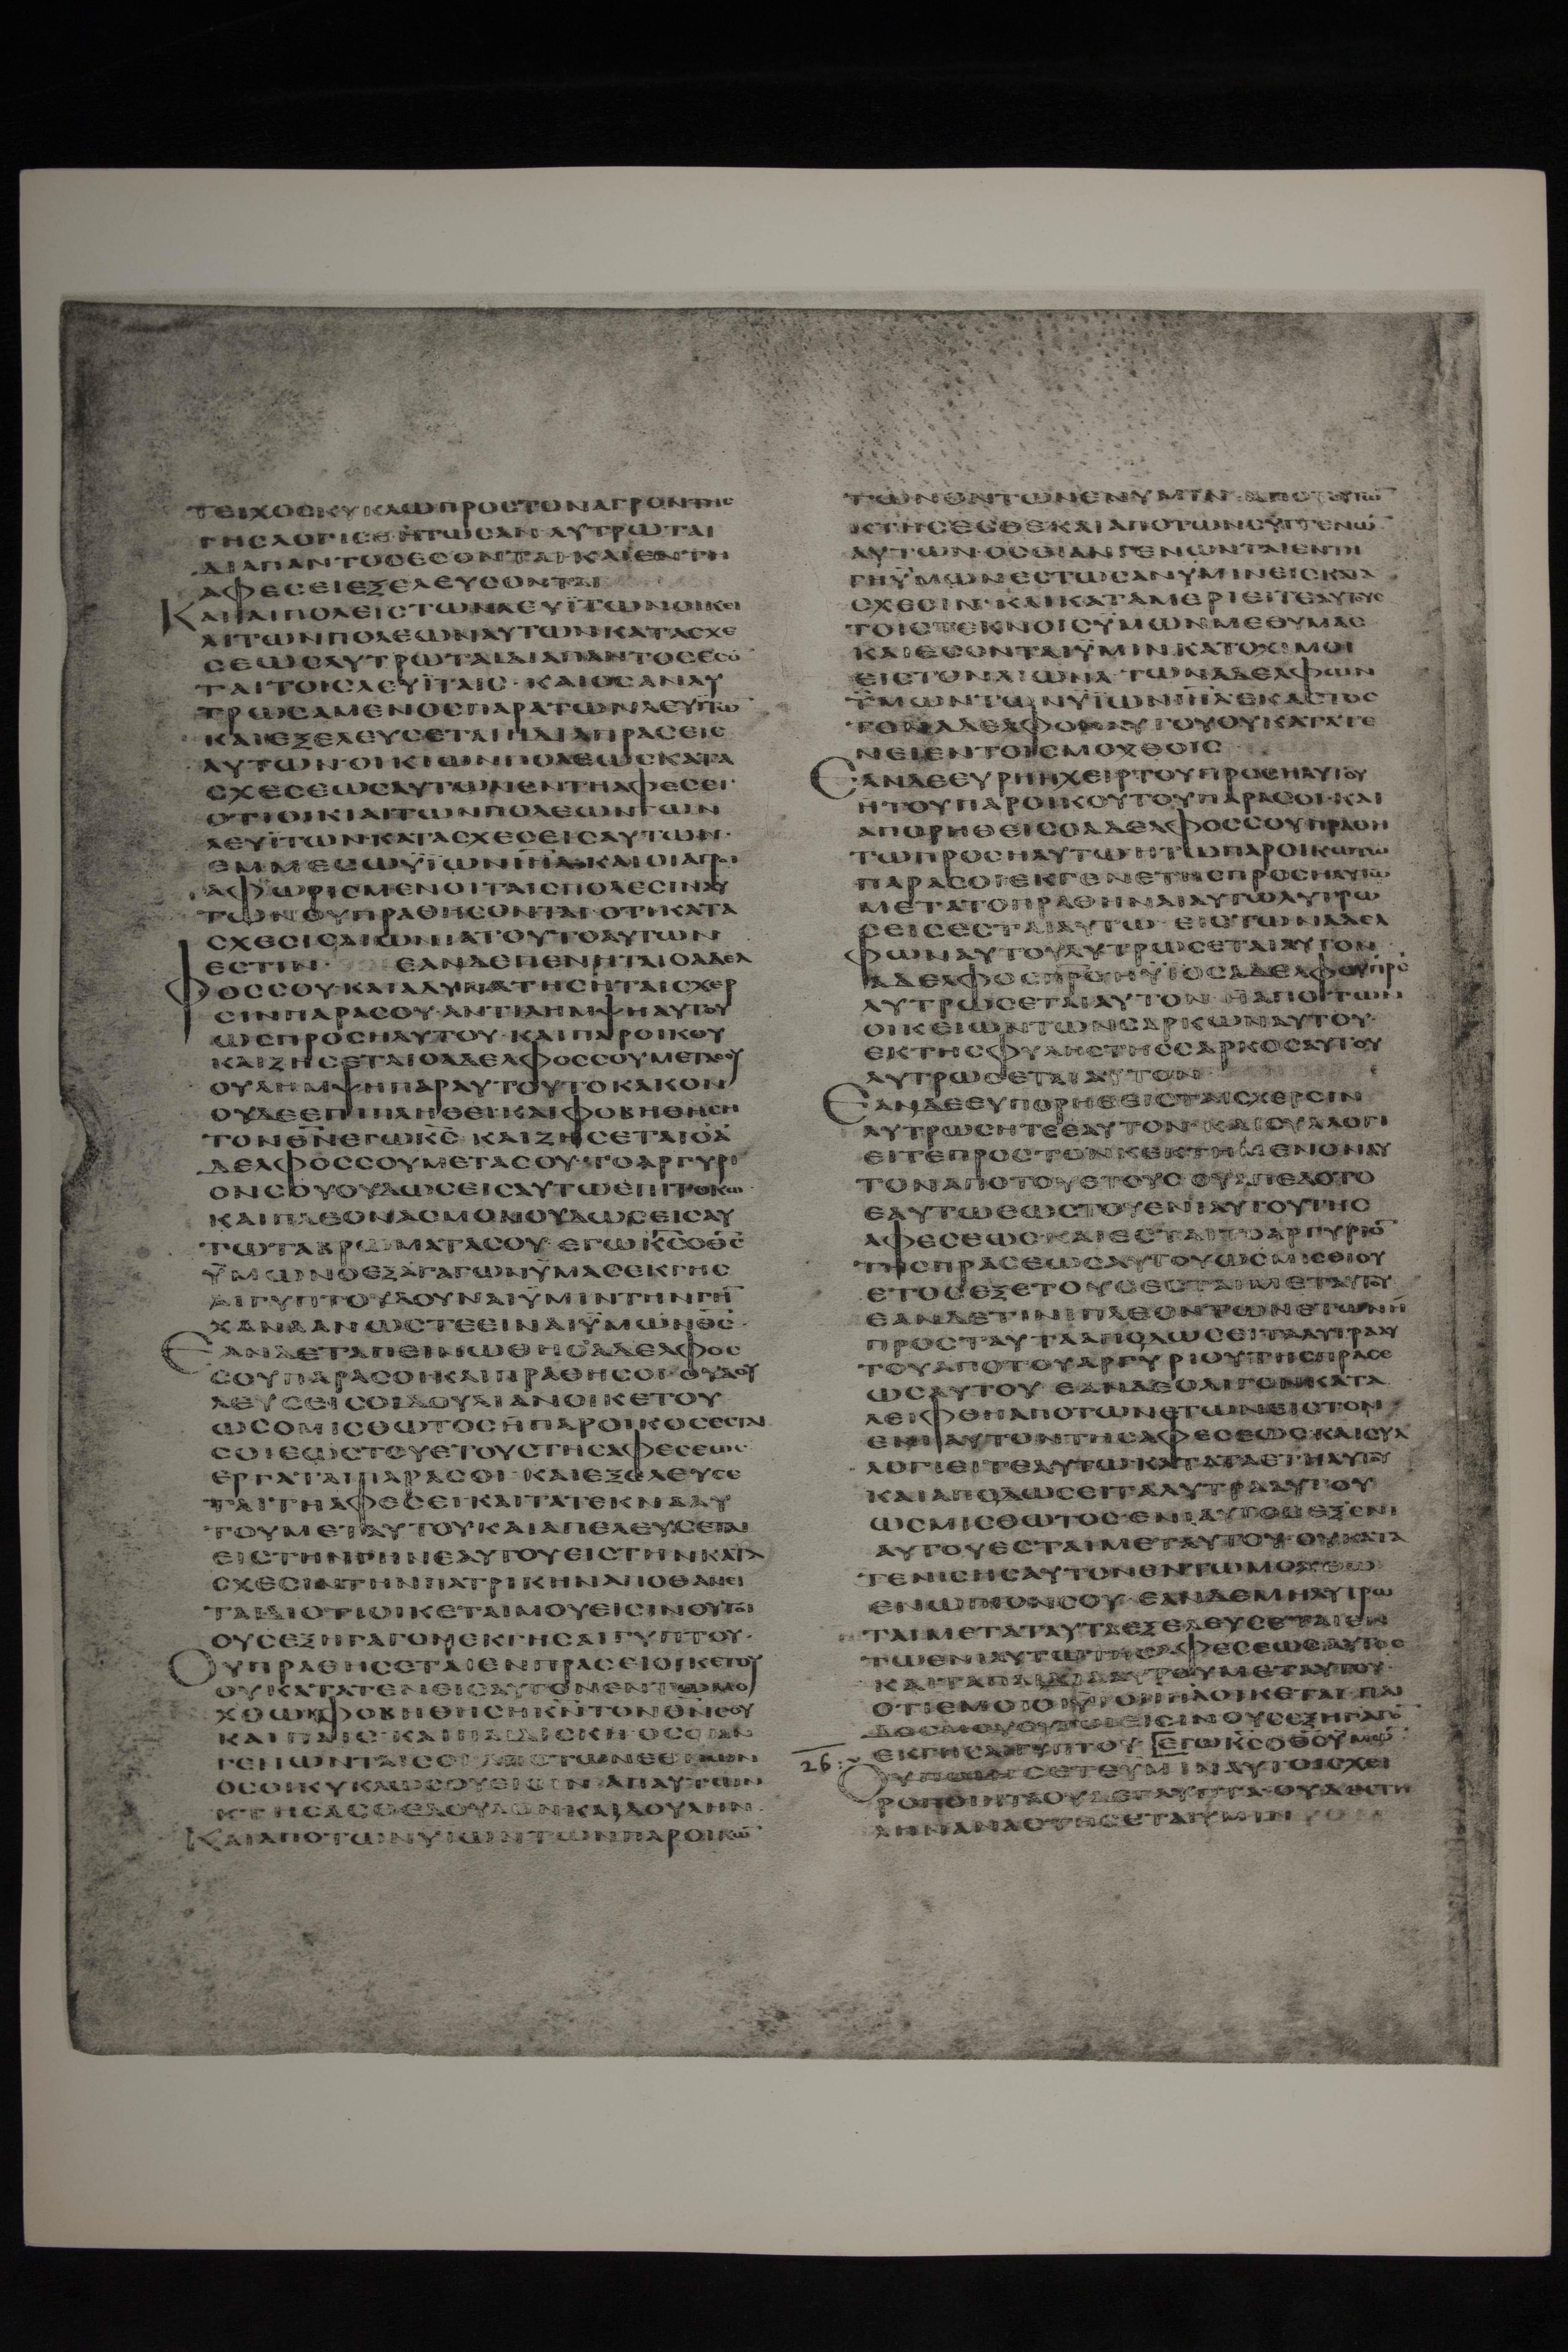 ΤΕΙΧΟΣΚΥΚΛΩΠΡΟΣΤΟΝΑΓΡΟΝΤΗΣ
ΓΗΣΛΟΓΙΣΘΗΤΩΣΑΝ ΛΥΤΡΩΤΑΙ
ΔΙΑΠΑΝΤΟΣΕΣΟΝΤΑΙ·ΚΑΙΕΝΤΗ
ΑΦΕΣΕΙΕΞΕΛΕΥΣΟΝΤΑΙ
ΚΑΙΑΙΠΟΛΕΙΣΤΩΝΛΕΥΪΤΩΝΟΙΚΕΙ
ΑΙΤΩΝΠΟΛΕΩΝΑΥΤΩΝΚΑΤΑΣΧΕ
ΣΕΩΣΛΥΤΡΩΤΑΙΔΙΑΠΑΝΤΟΣΕΣΟ̅
ΤΑΙΤΟΙΣΛΕΥΪΤΑΙΣ·ΚΑΙΟΣΑΝΛΥ
ΤΡΩΣΑΜΕΝΟΣΠΑΡΑΤΩΝΛΕΥΪΤΩ̅
ΚΑΙΕΞΕΛΕΥΣΕΤΑΙΗΔΙΑΠΡΑΣΕΙΣ
ΑΥΤΩΝΟΙΚΙΩΝΠΟΛΕΩΣΚΑΤΑ
ΣΧΕΣΕΩΣΑΥΤΩΝΕΝΤΗΑΦΕΣΕΙ·
ΟΤΙΟΙΚΙΑΙΤΩΝΠΟΛΕΩΝΤΩΝ
ΛΕΥΪΤΩΝ·ΚΑΤΑΣΧΕΣΕΙΣΑΥΤΩΝ·
ΕΜΜΕΣΩΥΪΩΝΙΗ̅Λ·ΚΑΙΟΙΑΓΡΟΙ
ΑΦΩΡΙΣΜΕΝΟΙΤΑΙΣΠΟΛΕΣΙΝΑΥ
ΤΩΝΟΥΠΡΑΘΗΣΟΝΤΑΙ·ΟΤΙΚΑΤΑ
ΣΧΕΣΙΣΑΙΩΝΙΑΤΟΥΤΟΑΥΤΩΝ
ΕΣΤΙΝ· ΕΑΝΔΕΠΕΝΗΤΑΙΟΑΔΕΛ
ΦΟΣΣΟΥ·ΚΑΙΑΔΥΝΑΤΗΣΗΤΑΙΣΧΕΡ
ΣΙΝΠΑΡΑΣΟΥ·ΑΝΤΙΛΗΜΨΗΑΥΤΟΥ
ΩΣΠΡΟΣΗΛΥΤΟΥ·ΚΑΙΠΑΡΟΙΚΟΥ
ΚΑΙΖΗΣΕΤΑΙΟΑΔΕΛΦΟΣΣΟΥΜΕΤΑΣΟΥ
ΟΥΛΗΜΨΗΠΑΡΑΥΤΟΥΤΟΚΑΚΟΝ
ΟΥΔΕΕΠΙΠΛΗΘΕΙ·ΚΑΙΦΟΒΗΘΗΣΗ
ΤΟΝΘ̅Ν̅ΕΓΩΚ̅Σ̅ ΚΑΙΖΗΣΕΤΑΙΟΑ
ΔΕΛΦΟΣΣΟΥΜΕΤΑΣΟΥ·ΤΟΑΡΓΥΡΙ
ΟΝΣΟΥΟΥΔΩΣΕΙΣΑΥΤΩΕΠΙΤΟΚΩ·
ΚΑΙΠΛΕΟΝΑΣΜΟΝΟΥΔΩΣΕΙΣΑΥ
ΤΩΤΑΒΡΩΜΑΤΑΣΟΥ·ΕΓΩΚ̅Σ̅ΟΘ̅Σ̅
ΥΜΩΝΟΕΞΑΓΑΓΩΝΥΜΑΣΕΚΓΗΣ
ΑΙΓΥΠΤΟΥΔΟΥΝΑΙΥΜΙΝΤΗΝΓΗ̅
ΧΑΝΑΑΝ ΩΣΤΕΕΙΝΑΙΥΜΩΝΘ̅Σ̅·
ΕΑΝΔΕΤΑΠΕΙΝΩΘΗΟΑΔΕΛΦΟΣ
ΣΟΥΠΑΡΑΣΟΙ·ΚΑΙΠΡΑΘΗΣΟΙ·ΟΥΔΟΥ
ΛΕΥΣΕΙΣΟΙΔΟΥΛΙΑΝΟΙΚΕΤΟΥ
ΩΣΟΜΙΣΘΩΤΟΣΗΠΑΡΟΙΚΟΣΕΣΤΑΙ
ΣΟΙΕΩΣΤΟΥΕΤΟΥΣΤΗΣΑΦΕΣΕΩΣ
ΕΡΓΑΤΑΙΠΑΡΑΣΟΙ·ΚΑΙΕΞΕΛΕΥΣΕ
ΤΑΙΤΗΑΦΕΣΕΙΚΑΙΤΑΤΕΚΝΑΑΥ
ΤΟΥΜΕΤΑΥΤΟΥΚΑΙΑΠΕΛΕΥΣΕΤΑΙ
ΕΙΣΤΗΝΓΗΝΕΑΥΤΟΥΕΙΣΤΗΝΚΑΤΑ
ΣΧΕΣΙΝΤΗΝΠΑΤΡΙΚΗΝΑΠΟΘΑΝΕΙ
ΤΑΙΔΙΟΤΙΟΙΚΕΤΑΙΜΟΥΕΙΣΙΝΟΥΤΟΙ
ΟΥΣΕΞΗΓΑΓΟΝΕΚΓΗΣΑΙΓΥΠΤΟΥ·
ΟΥΠΡΑΘΗΣΕΤΑΙΕΝΠΡΑΣΕΙΟΙΚΕΤΟΥ
ΟΥΚΑΤΑΤΕΝΕΙΣΑΥΤΟΝΕΝΤΩΜΟ
ΧΘΩΚΦΟΒΗΘΗΣΗΚ̅Ν̅ΤΟΝΘ̅Ν̅ΣΟΥ
ΚΑΙΠΑΙΣ·ΚΑΙΠΑΙΔΙΣΚΗ·ΟΣΟΙΑΝ
ΓΕΝΩΝΤΑΙΣΟΙ·ΑΠΟΤΩΝΕΘΝΩΝ
ΟΣΟΙΚΥΚΛΩΣΟΥΕΙΣΙΝ·ΑΠΑΥΤΩΝ
ΚΤΗΣΑΣΘΕΔΟΥΛΟΝΚΑΙΔΟΥΛΗΝ·
ΚΑΙΑΠΟΤΩΝΥΙΩΝΤΩΝΠΑΡΟΙΚΩ̅
ΤΩΝΟΝΤΩΝΕΝΥΜΙΝ·ΑΠΟΤΟΥΤΩ̅
ΚΤΗΣΕΣΘΕΚΑΙΑΠΟΤΩΝΣΥΓΓΕΝΩ̅
ΑΥΤΩΝ·ΟΣΟΙΑΝΓΕΝΩΝΤΑΙΕΝΤΗ
ΓΗΥΜΩΝΕΣΤΩΣΑΝΥΜΙΝΕΙΣΚΑΤΑ
ΣΧΕΣΙΝ·ΚΑΙΚΑΤΑΜΕΡΙΕΙΤΕΑΥΤΟΥΣ
ΤΟΙΣΤΕΚΝΟΙΣΥΜΩΝΜΕΘΥΜΑΣ
ΚΑΙΕΣΟΝΤΑΙΥΜΙΝΚΑΤΟΧΙΜΟΙ
ΕΙΣΤΟΝΑΙΩΝΑ·ΤΩΝΑΔΕΛΦΩΝ
ΥΜΩΝΤΩΝΥΪΩΝΙΗ̅Λ·ΕΚΑΣΤΟΣ
ΤΟΝΑΔΕΛΦΟΝΑΥΤΟΥΟΥΚΑΤΑΤΕ
ΝΕΙΕΝΤΟΙΣΜΟΧΘΟΙΣ
ΕΑΝΔΕΕΥΡΗΗΧΕΙΡΤΟΥΠΡΟΣΗΛΥΤΟΥ
ΗΤΟΥΠΑΡΟΙΚΟΥΤΟΥΠΑΡΑΣΟΙ·ΚΑΙ
ΑΠΟΡΗΘΕΙΣΟΑΔΕΛΦΟΣΣΟΥΠΡΑΘΗ
ΤΩΠΡΟΣΗΛΥΤΩΗΤΩΠΑΡΟΙΚΩΤΩ
ΠΑΡΑΣΟΙΕΚΓΕΝΕΤΗΣΠΡΟΣΗΛΥΤΩ
ΜΕΤΑΤΟΠΡΑΘΗΝΑΙΑΥΤΩΛΥΤΡΩ
ΣΕΙΣΕΣΤΑΙΑΥΤΩ ΕΙΣΤΩΝΑΔΕΛ
ΦΩΝΑΥΤΟΥΛΥΤΡΩΣΕΤΑΙΑΥΤΟΝ
ΑΔΕΛΦΟΣΠ̅Ρ̅Σ̅ΗΥΪΟΣΑΔΕΛΦΟΥΠ̅Ρ̅Σ̅
ΛΥΤΡΩΣΕΤΑΙΑΥΤΟΝ·ΗΑΠΟΤΩΝ
ΟΙΚΕΙΩΝΤΩΝΣΑΡΚΩΝΑΥΤΟΥ·
ΕΚΤΗΣΦΥΛΗΣΤΗΣΣΑΡΚΟΣΑΥΤΟΥ
ΛΥΤΡΩΣΕΤΑΙΑΥΤΟΝ
ΕΑΝΔΕΕΥΠΟΡΗΘΕΙΣΤΑΙΣΧΕΡΣΙΝ
ΛΥΤΡΩΣΗΤΕΕΑΥΤΟΝ·ΚΑΙΣΥΛΛΟΓΙ
ΕΙΤΕΠΡΟΣΤΟΝΚΕΚΤΗΜΕΝΟΝΑΥ
ΤΟΝΑΠΟΤΟΥΕΤΟΥΣΟΥΑΠΕΔΟΤΟ
ΕΑΥΤΩΕΩΣΤΟΥΕΝΙΑΥΤΟΥΤΗΣ
ΑΦΕΣΕΩΣΚΑΙΕΣΤΑΙΤΟΑΡΓΥΡΙΟ̅
ΤΗΣΠΡΑΣΕΩΣΑΥΤΟΥΩΣΜΙΣΘΙΟΥ
ΕΤΟΣΕΞΕΤΟΥΣΕΣΤΑΙΜΕΤΑΥΤΟΥ
ΕΑΝΔΕΤΙΝΙΠΛΕΟΝΤΩΝΕΤΩΝΗ
ΠΡΟΣΤΑΥΤΑΑΠΟΔΩΣΕΙΤΑΛΥΤΡΑΑΥ
ΤΟΥΑΠΟΤΟΥΑΡΓΥΡΙΟΥΤΗΣΠΡΑΣΕ
ΩΣΑΥΤΟΥ ΕΑΝΔΕΟΛΙΓΟΝΚΑΤΑ
ΛΕΙΦΘΗΑΠΟΤΩΝΕΤΩΝΕΙΣΤΟΝ
ΕΝΙΑΥΤΟΝΤΗΣΑΦΕΣΕΩΣ·ΚΑΙΣΥΛ
ΛΟΓΙΕΙΤΕΑΥΤΩΚΑΤΑΤΑΕΤΗΑΥΤΟΥ
ΚΑΙΑΠΟΔΩΣΕΙΤΑΛΥΤΡΑΑΥΤΟΥ
ΩΣΜΙΣΘΩΤΟΣ·ΕΝΙΑΥΤΟΣΕΞΕΝΙ
ΑΥΤΟΥΕΣΤΑΙΜΕΤΑΥΤΟΥ·ΟΥΚΑΤΑ
ΤΕΝΙΕΙΣΑΥΤΟΝΕΝΤΩΜΟΧΘΩ
ΕΝΩΠΙΟΝΣΟΥ·ΕΑΝΔΕΜΗΛΥΤΡΩ
ΤΑΙΜΕΤΑΤΑΥΤΑΕΞΕΛΕΥΣΕΤΑΙΕΝ
ΤΩΕΝΙΑΥΤΩΤΗΣΑΦΕΣΕΩΣΑΥΤΟΣ
ΚΑΙΤΑΠΑΙΔΙΑΑΥΤΟΥΜΕΤΑΥΤΟΥ·
ΟΤΙΕΜΟΙΟΙΥΙΟΙΙΗ̅ΛΟΙΚΕΤΑΙ·ΠΑΙ
ΔΕΣΜΟΥΟΥΤΟΙΕΙΣΙΝΟΥΣΕΞΗΓΑΓΟ̅
ΕΚΓΗΣΑΙΓΥΠΤΟΥ [ΕΓΩΚ̅Σ̅ΟΘ̅Σ̅ΥΜΩ̅
26:
ΟΥΠΟΙΗΣΕΤΕΥΜΙΝΑΥΤΟΙΣΧΕΙ
ΡΟΠΟΙΗΤΑΟΥΔΕΓΛΥΠΤΑ·ΟΥΔΕΣΤΗ
ΛΗΝΑΝΑΣΤΗΣΕΤΑΙΥΜΙΝ